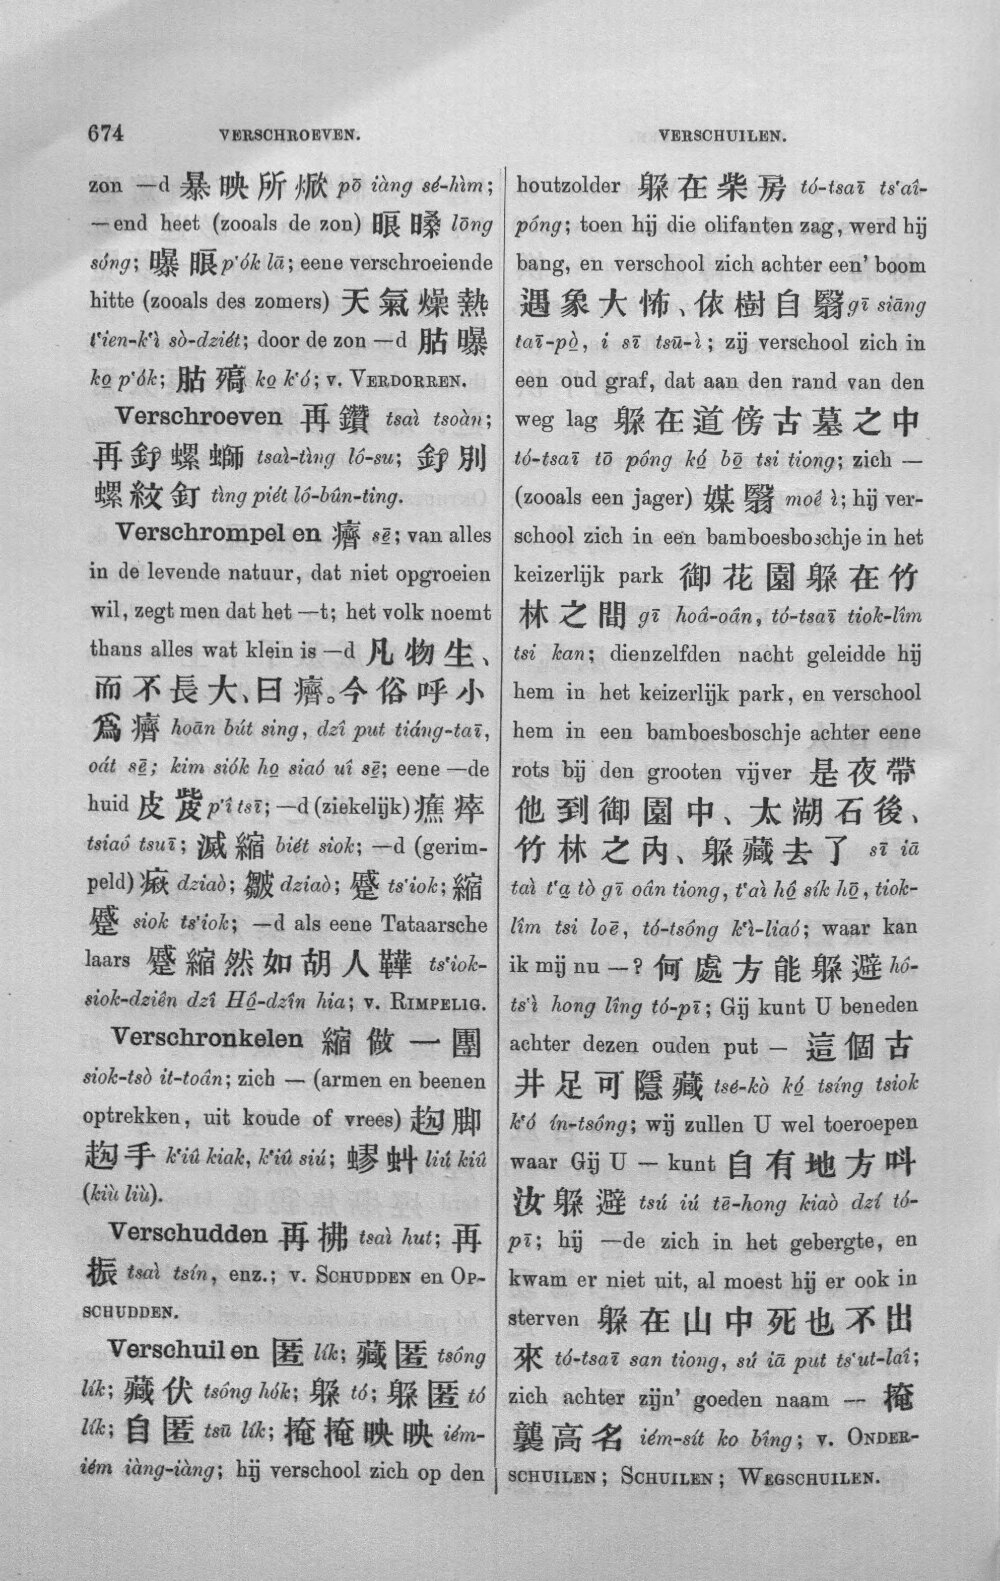 674 VERSCHROEVEN. VERSCHUILEN.
zon —d 暴映所焮 pō iàng sé-hìm;
—end heet (zooals de zon) 㫰㬤 lōng
sóng; 曝㫰 p‘ók lā; eene verschroeiende
hitte (zooals des zomers) 天氣燥熱
t‘ien-k‘ì sò-dziét; door de zon —d 㱠曝
ko̱ p‘ók; ko̱ k‘ó; v. VERDORREN.
Verschroeven 再鑽 tsaì tsoàn;
再 螺螄 tsaì-tìng ló-su; 別
螺紋釘 tìng piét ló-bûn-ting.
Verschrompelen 癠 sē̱; van alles
in de levende natuur, dat niet opgroeien
wil, zegt men dat het —t; het volk noemt
thans alles wat klein is —d 凡物生、
而不長大、曰癠。今俗呼小
爲癠 hoān bút sing, dzî put tiáng-taī,
oát sē̱; kim siók ho̱ siaó uî sē̱; eene —de
huid 皮 p‘î tsī; —d (ziekelijk) 癄瘁
tsiaô tsuī; 滅縮 biét siok; —d (gerim-
peld) dziaò; 皺 dziaò; 蹙 ts‘iok; 縮
蹙 siok ts‘iok; —d als eene Tataarsche
laars 蹙縮然如胡人鞾 ts‘iok-
siok-dziên dzî Hô̱-dzîn hia; v. RIMPELIG.
Verschronkelen 縮做一團
siok-tsò it-toân; zich — (armen en beenen
optrekken, uit koude of vrees) 趜脚
趜手 k‘iû kiak, k‘iû siú; 蟉虯 liú kiû
(kiù liù).
Verschudden 再拂 tsaì hut; 再
振 tsaì tsín, enz.; v. SCHUDDEN en OP-
SCHUDDEN.
Verschuilen 匿 lík; 藏匿 tsông
lík; 藏伏 tsông hók; 躱 tó; 躱匿 tó
lík; 自匿 tsū lík; 掩掩映映 iém-
iém iàng-iàng; hij verschool zich op den
houtzolder 躱在柴房 tó-tsaī ts‘aî-
póng; toen hij die olifanten zag, werd hij
bang, en verschool zich achter een’ boom
遇象大怖、依樹自翳 gī siāng
taī-pò̱, i sī tsū-ì; zij verschool zich in
een oud graf, dat aan den rand van den
weg lag 躱在道傍古墓之中
tó-tsaī tō póng kó̱ bō̱ tsi tiong; zich —
(zooals een jager) 媒翳 moê ì; hij ver-
school zich in een bamboesboschje in het
keizerlijk park 御花園躱在竹
林之間 gī hoâ-oân, tó-tsaī tiok-lîm
tsi kan; dienzelfden nacht geleidde hij
hem in het keizerlijk park, en verschool
hem in een bamboesboschje achter eene
rots bij den grooten vijver 是夜帶
他到御園中、太湖石後、
竹林之內、躱藏去了 sī iā
taì t‘a̱ tò gī oân tiong, t‘aì hô̱ sík hō̱, tiok-
lîm tsi loē, tó-tsông k‘ì-liaó; waar kan
ik mij nu —? 何處方能躱避 hô-
ts‘ì hong lîng tó-pī; Gij kunt U beneden
achter dezen ouden put — 這個古
井足可隱藏 tsé-kò kó̱ tsíng tsiok
k‘ó ín-tsông; wij zullen U wel toeroepen
waar Gij U — kunt 自有地方呌
汝躱避 tsú iú tē-hong kiaò dzí tó-
pī; hij —de zich in het gebergte, en
kwam er niet uit, al moest hij er ook in
sterven 躱在山中死也不出
來 tó-tsaī san tiong, sú iā put ts‘ut-laî;
zich achter zijn’ goeden naam — 掩
襲高名 iém-sít ko bîng; v. ONDER-
SCHUILEN; SCHUILEN; WEGSCHUILEN.